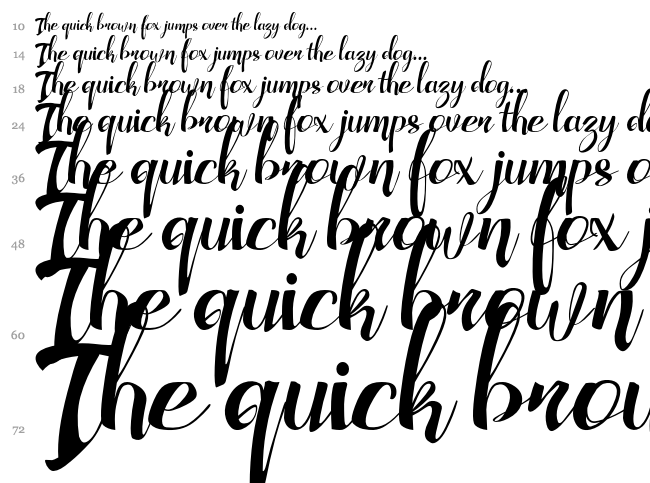 10 The quick brown fox jumps over the lazy dog...
14 The quick brown fox jumps over the lazy dog...
18 The quick brown fox jumps over the lazy dog...
24 The quick brown fox jumps over the lazy do
36 The quick brown fox jumps o
48 The quick brown fox j
60 The quick brown
72 The quick brou